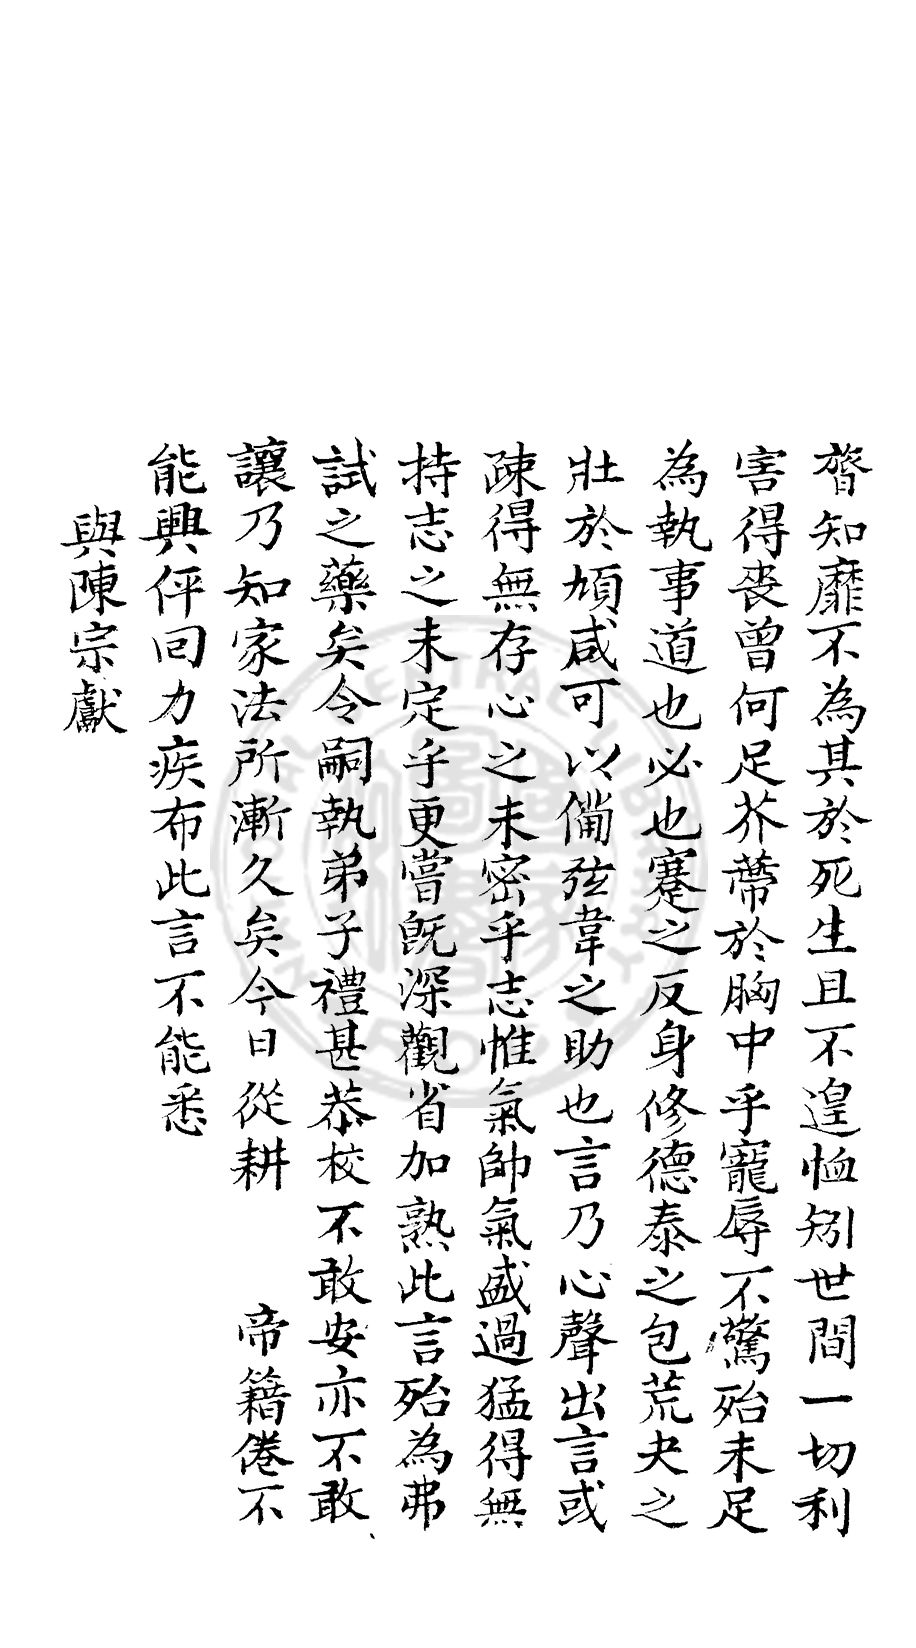 膂知靡不為其於死生且不遑恤矧世間一切利
害得喪曾何足芥蔕於胸中乎寵辱不驚殆未足
為執事道也必也蹇之反身修德泰之包荒夬之
壯於頄咸可以備弦韋之助也言乃心聲出言或
疎得無存心之未密乎志惟氣帥氣盛過猛得無
持志之未定乎更嘗既深觀省加熟此言殆為弗
試之藥矣令嗣執弟子禮甚恭校不敢安亦不敢
讓乃知家法所漸久矣今日從耕 帝籍倦不
能興伻囘力疾布此言不能悉
與陳宗獻